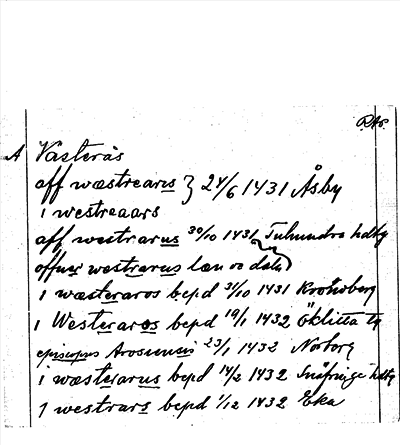 RAp.
A Västerås
aff wæstrearus } 24/6 1431 Åsby
i westreaars
aff westrarus 30/10 1431 Tuhundra hdby
offuer westrarus læn oc dala
i wæsteraros bepd 31/10 1431 Kronoberg
i Westeraros bepd 19/1 1432 Öklitta tg
episcopus Arosiensis 23/1 1432 Norborg
i wæsterarus bepd 14/2 1432 Snäfringe hdby
i westrars bepd 1/12 1432 Eka